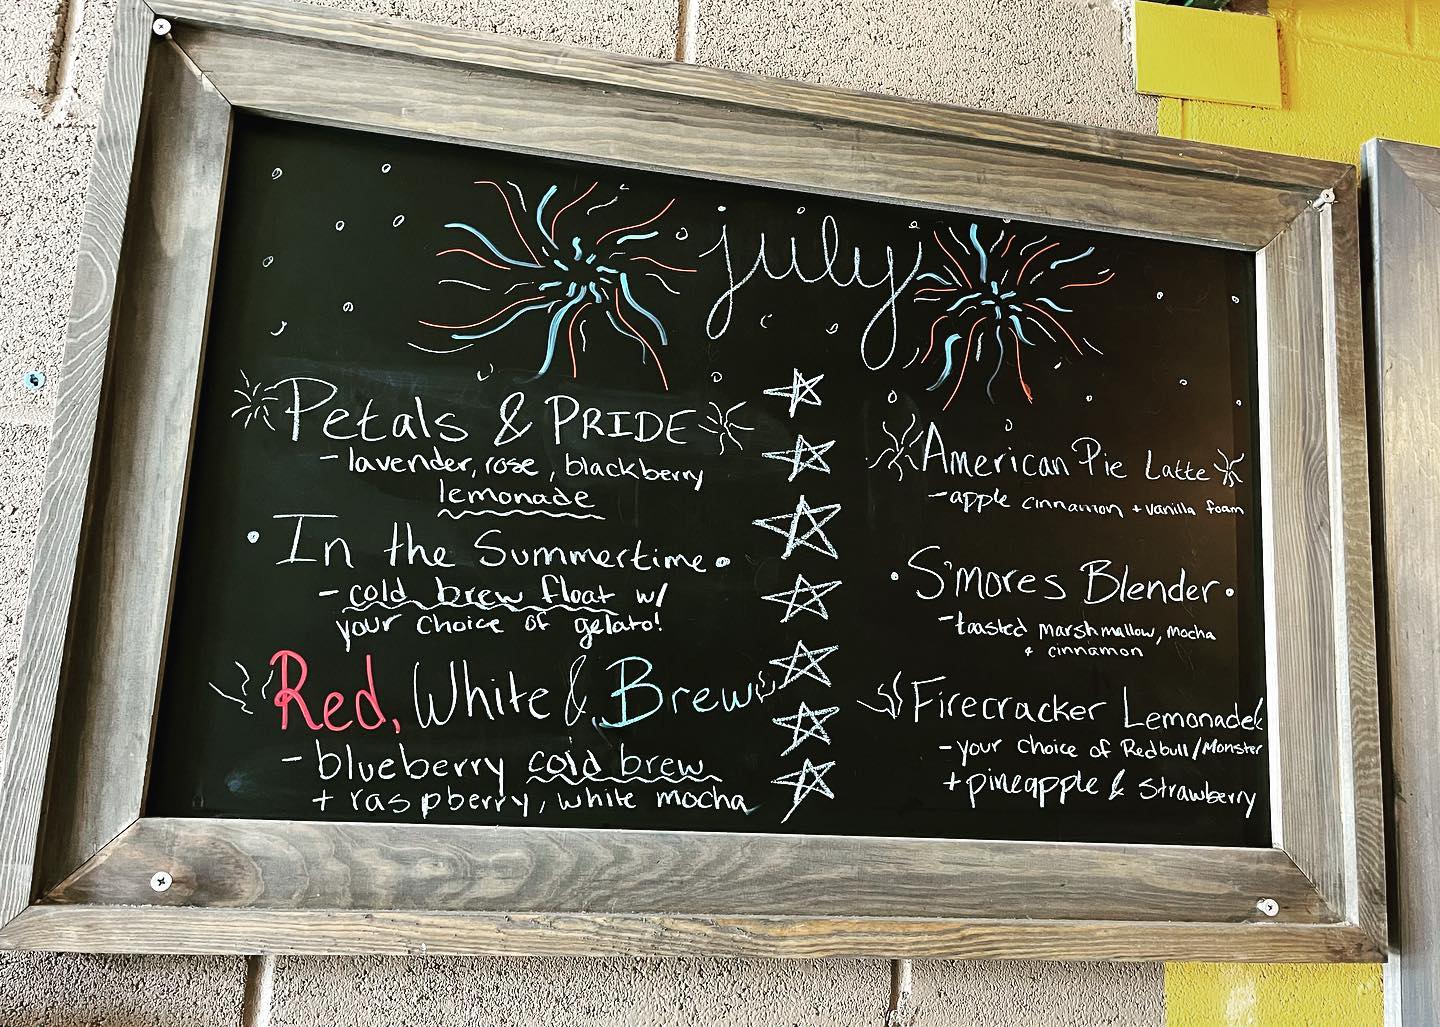 july
Petals & PRIDE
- lavender, rose, blackberry
lemonade
• In the Summertime •
- cold brew float w/
your choice of gelato!
Red, White & Brew
- blueberry cold brew
+ raspberry, white mocha
American Pie Latte
- apple cinnamon + vanilla foam
• S'mores Blender •
- toasted marshmallow, mocha
+ cinnamon
Firecracker Lemonade
- your choice of Redbull/Monster
+ pineapple & strawberry